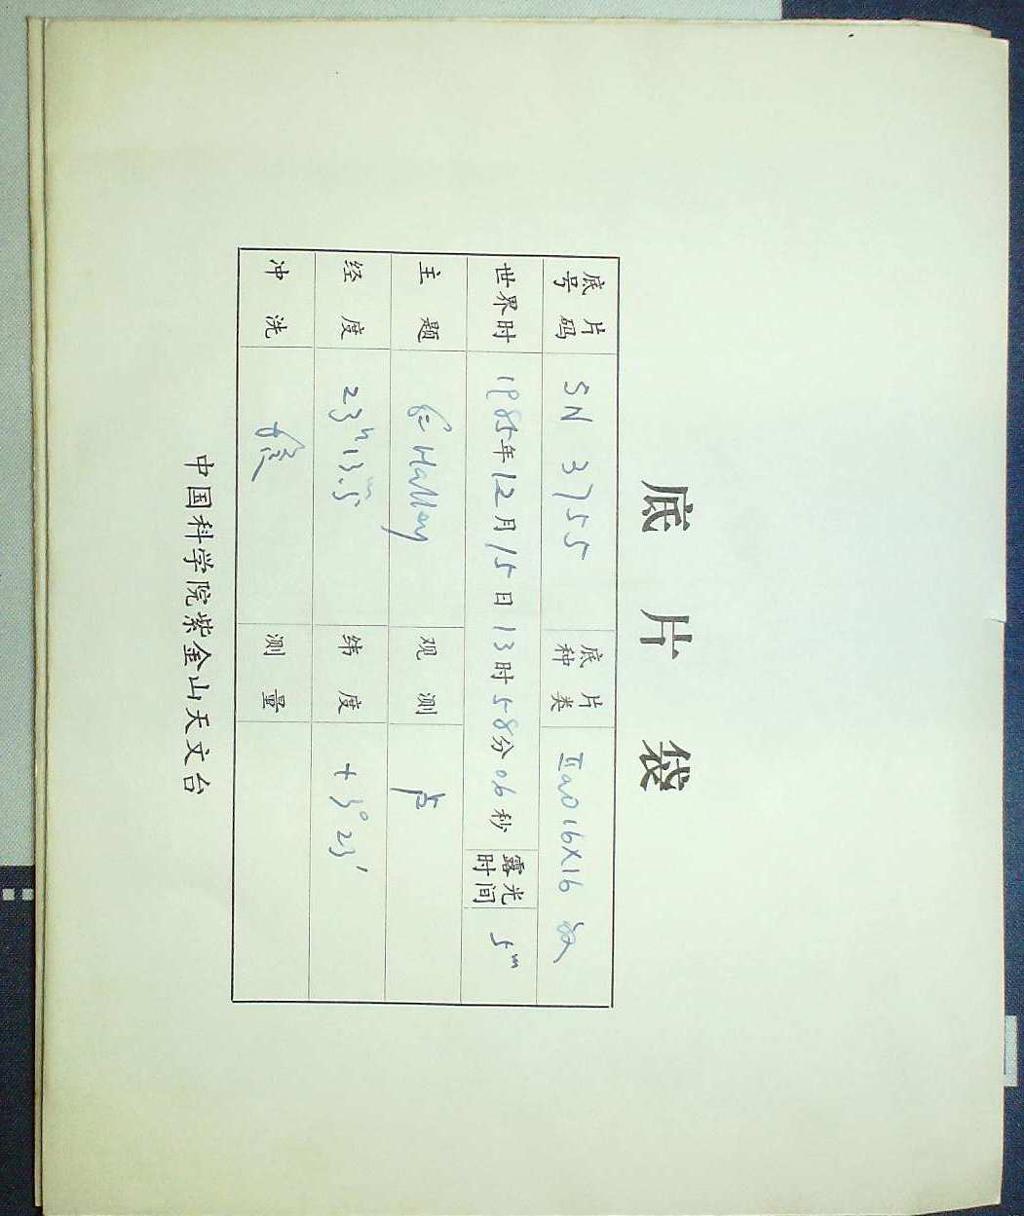 底片袋
底片号码 SN 3755 底片种类 IIaO 16×16
世界时 1985年12月15日13时58分06秒 露光时间 5m
主题 Halley 观测 卢
经度 23h13m.5 纬度 +3°23′
冲洗 测量
中国科学院紫金山天文台